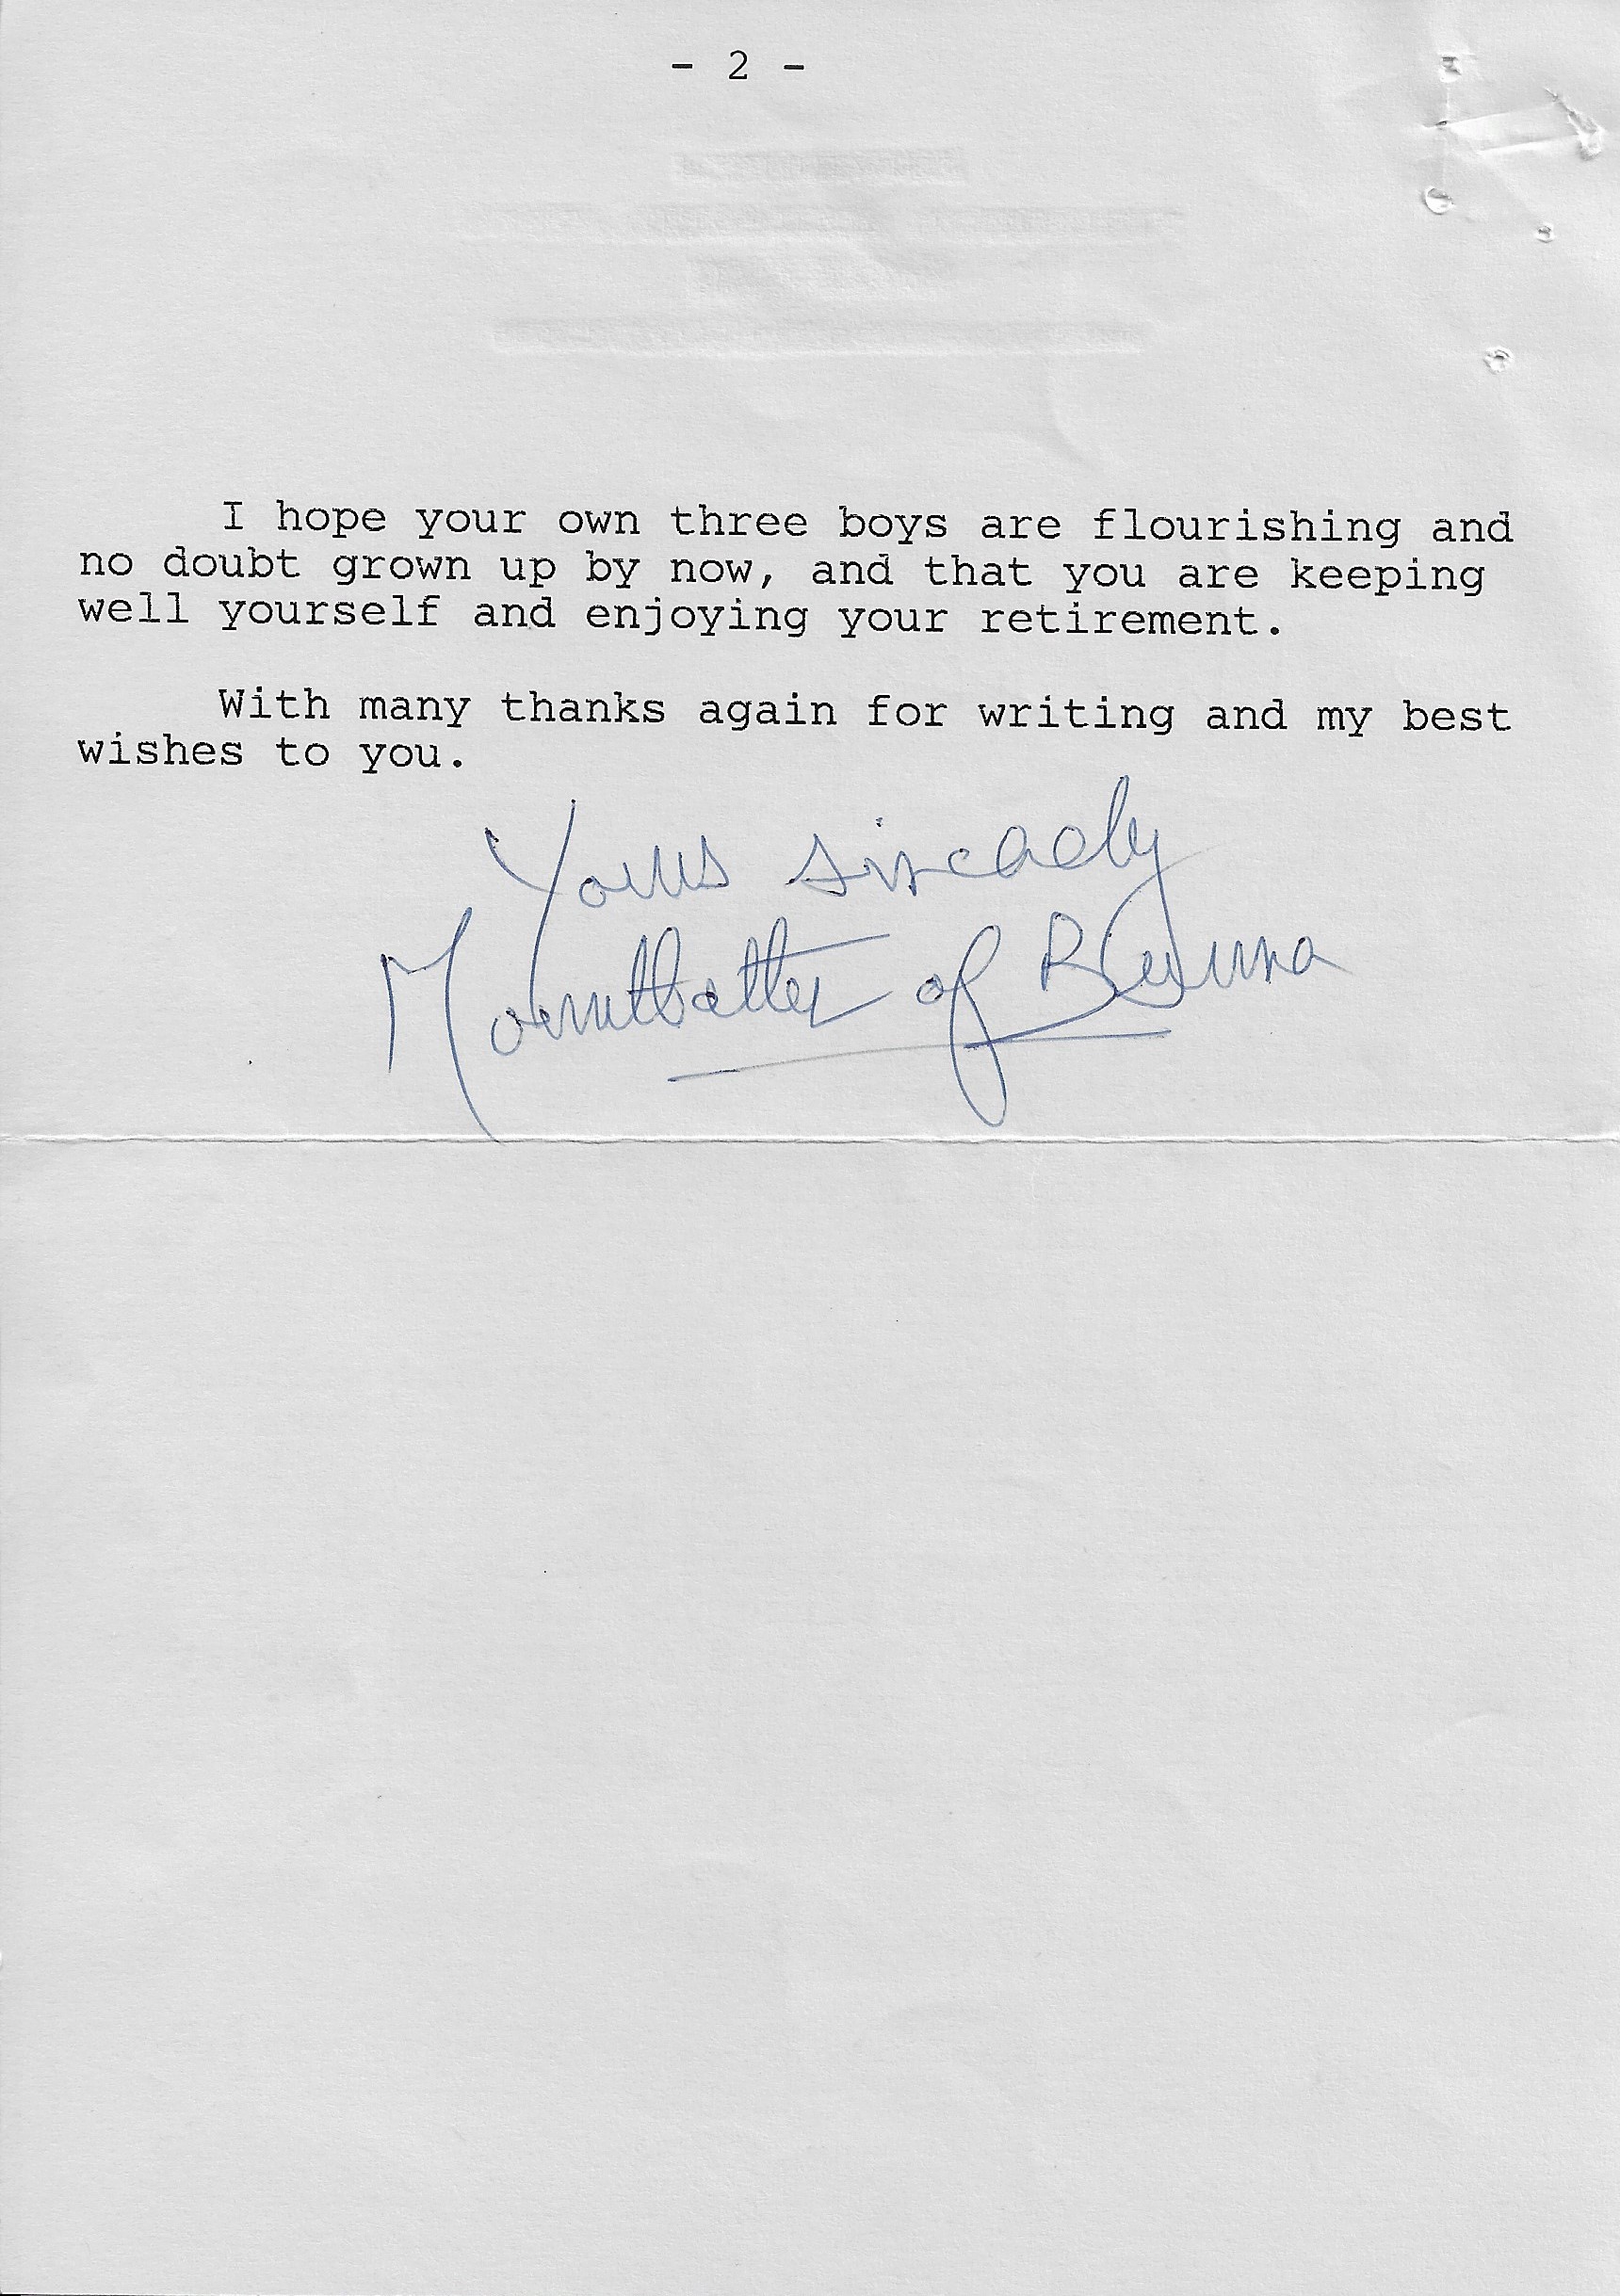 - 2 -
I hope your own three boys are flourishing and
no doubt grown up by now, and that you are keeping
well yourself and enjoying your retirement.
With many thanks again for writing and my best
wishes to you.
Yours sincerely
Mountbatten of Burma